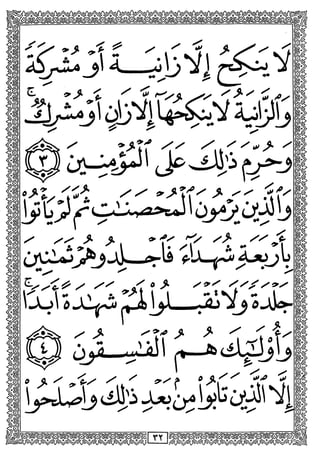 لَا يَنكِحُ إِلَّا زَانِيَةً أَوْ مُشْرِكَةً
وَالزَّانِيَةُ لَا يَنكِحُهَا إِلَّا زَانٍ أَوْ مُشْرِكٌ ۚ
وَحُرِّمَ ذَٰلِكَ عَلَى الْمُؤْمِنِينَ ٣
وَالَّذِينَ يَرْمُونَ الْمُحْصَنَاتِ ثُمَّ لَمْ يَأْتُوا
بِأَرْبَعَةِ شُهَدَاءَ فَاجْلِدُوهُمْ ثَمَانِينَ
جَلْدَةً وَلَا تَقْبَلُوا لَهُمْ شَهَادَةً أَبَدًا ۚ
وَأُولَٰئِكَ هُمُ الْفَاسِقُونَ ٤
إِلَّا الَّذِينَ تَابُوا مِن بَعْدِ ذَٰلِكَ وَأَصْلَحُوا
٣٢